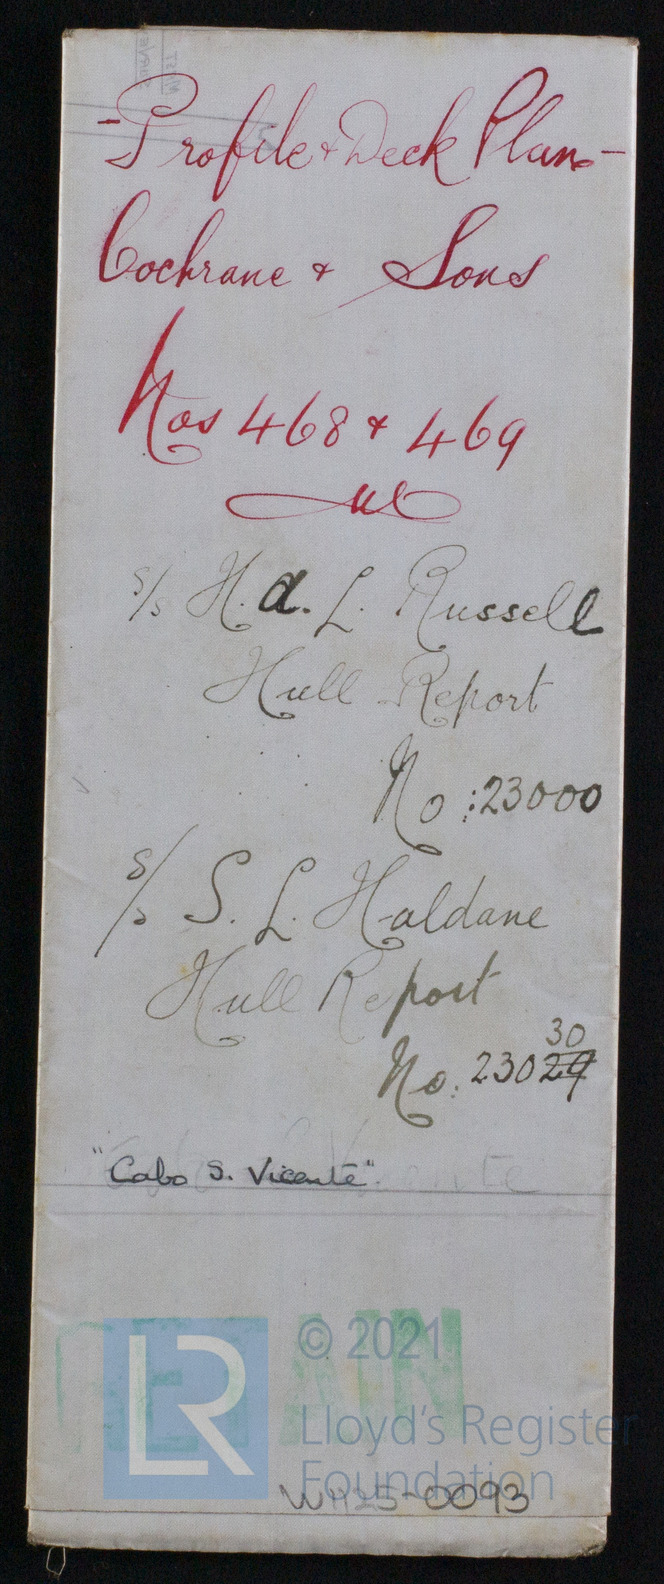 - Profile & Deck Plan -
Cochrane & Sons
Nos 468 & 469
S/S H. A. L. Russell
Hull Report
No: 23000
S/S S. L. Haldane
Hull Report
30
No: 23029
"Cabo S. Vicente".
RETAIN
LR
© 2021
Lloyd's Register
Foundation
W1125-0093